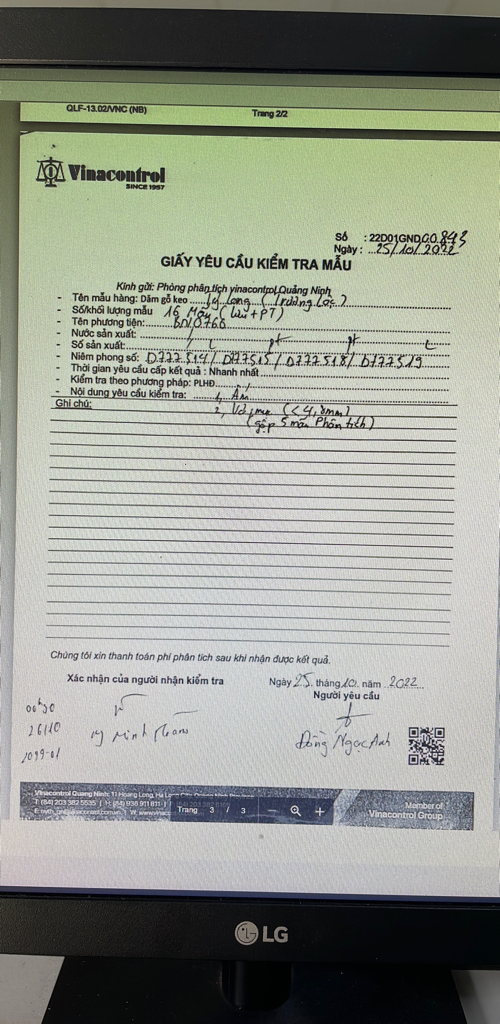 QLF-13.02/VNC (NB)
Trang 2/2
Vinacontrol
SINCE 1957
Số : 22D01GND00843
Ngày : 25/10/2022
GIẤY YÊU CẦU KIỂM TRA MẪU
Kính gửi: Phòng phân tích vinacontrol Quảng Ninh
- Tên mẫu hàng: Dăm gỗ keo Lý Long (Trường Lộc)
- Số/khối lượng mẫu 16 Mẫu (Lưu + PT)
- Tên phương tiện:
- Nước sản xuất:
- Số sản xuất:
- Niêm phong số: D777514/ D777515/ D777518/ D777519
- Thời gian yêu cầu cấp kết quả : Nhanh nhất
- Kiểm tra theo phương pháp: PLHĐ
- Nội dung yêu cầu kiểm tra: 1, Ẩm
Ghi chú: 2, (<4,8mm)
(gộp 5 mẫu Phân tích)
Chúng tôi xin thanh toán phí phân tích sau khi nhận được kết quả.
Xác nhận của người nhận kiểm tra
Ngày 25 tháng 10 năm 2022
Người yêu cầu
00h30
26/10
2099-01
Minh
Đồng Ngọc Anh
Vinacontrol Quang Ninh: 11 Hoang Long, Ha
T: (84) 203 382 5535 | H: (84) 936 911 811
Trang 3 / 3
Member of
Vinacontrol Group
LG